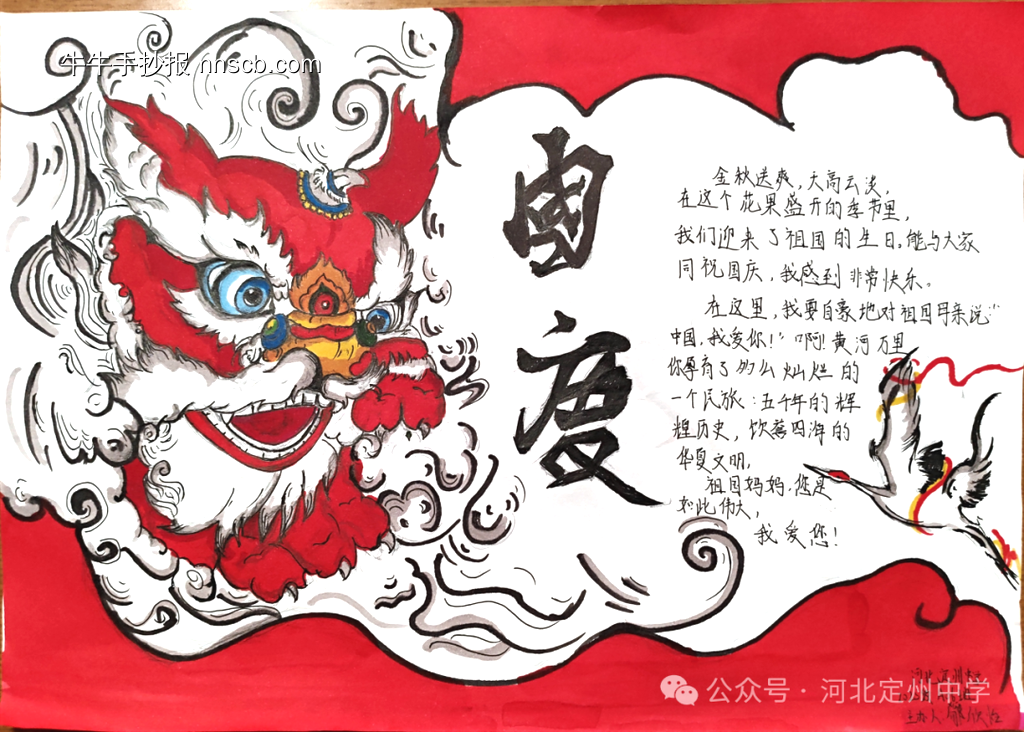 牛牛手抄报 nnscb.com
國
度
金秋送爽，大高云淡，
在这个花果盛开的季节里，
我们迎来了祖国的生日，能与大家
同祝国庆，我感到非常快乐。
在这里，我要自豪地对祖国母亲说：“
中国，我爱你！”“啊！黄河万里
你孕育了多么灿烂的
一个民族：五千年的辉
煌历史，饮誉四海的
华夏文明，
祖国妈妈，您是
如此伟大，
我爱您！
公众号·河北定州中学
主办人：